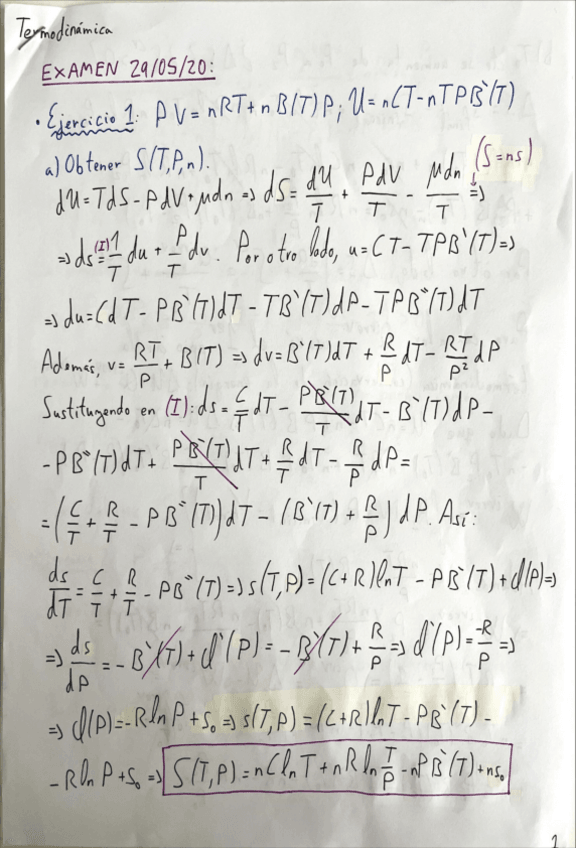 Termodinámica
EXAMEN 29/05/20:
• Ejercicio 1: PV = nRT + nB(T)P; U = nCT - nTPB`(T)
a) Obtener S(T,P,n).
(S=ns)
dU = TdS - PdV + μdn => dS = dU/T + PdV/T - μdn/T =>
=> ds =(I) 1/T du + P/T dv. Por otro lado, u = CT - TPB`(T) =>
=> du = CdT - PB`(T)dT - TB`(T)dP - TPB``(T)dT
Además, v = RT/P + B(T) => dv = B`(T)dT + R/P dT - RT/P² dP
Sustituyendo en (I): ds = C/T dT - PB`(T)/T dT - B`(T)dP -
- PB``(T)dT + PB`(T)/T dT + R/T dT - R/P dP =
= (C/T + R/T - PB``(T))dT - (B`(T) + R/P)dP. Así:
ds/dT = C/T + R/T - PB``(T) => s(T,P) = (C+R)lnT - PB`(T) + d(P) =>
=> ds/dP = - B`(T) + d`(P) = - B`(T) + R/P => d`(P) = -R/P =>
=> d(P) = -RlnP + s₀ => s(T,P) = (C+R)lnT - PB`(T) -
- RlnP + s₀ => S(T,P) = nClnT + nRln T/P - nPB`(T) + ns₀
1